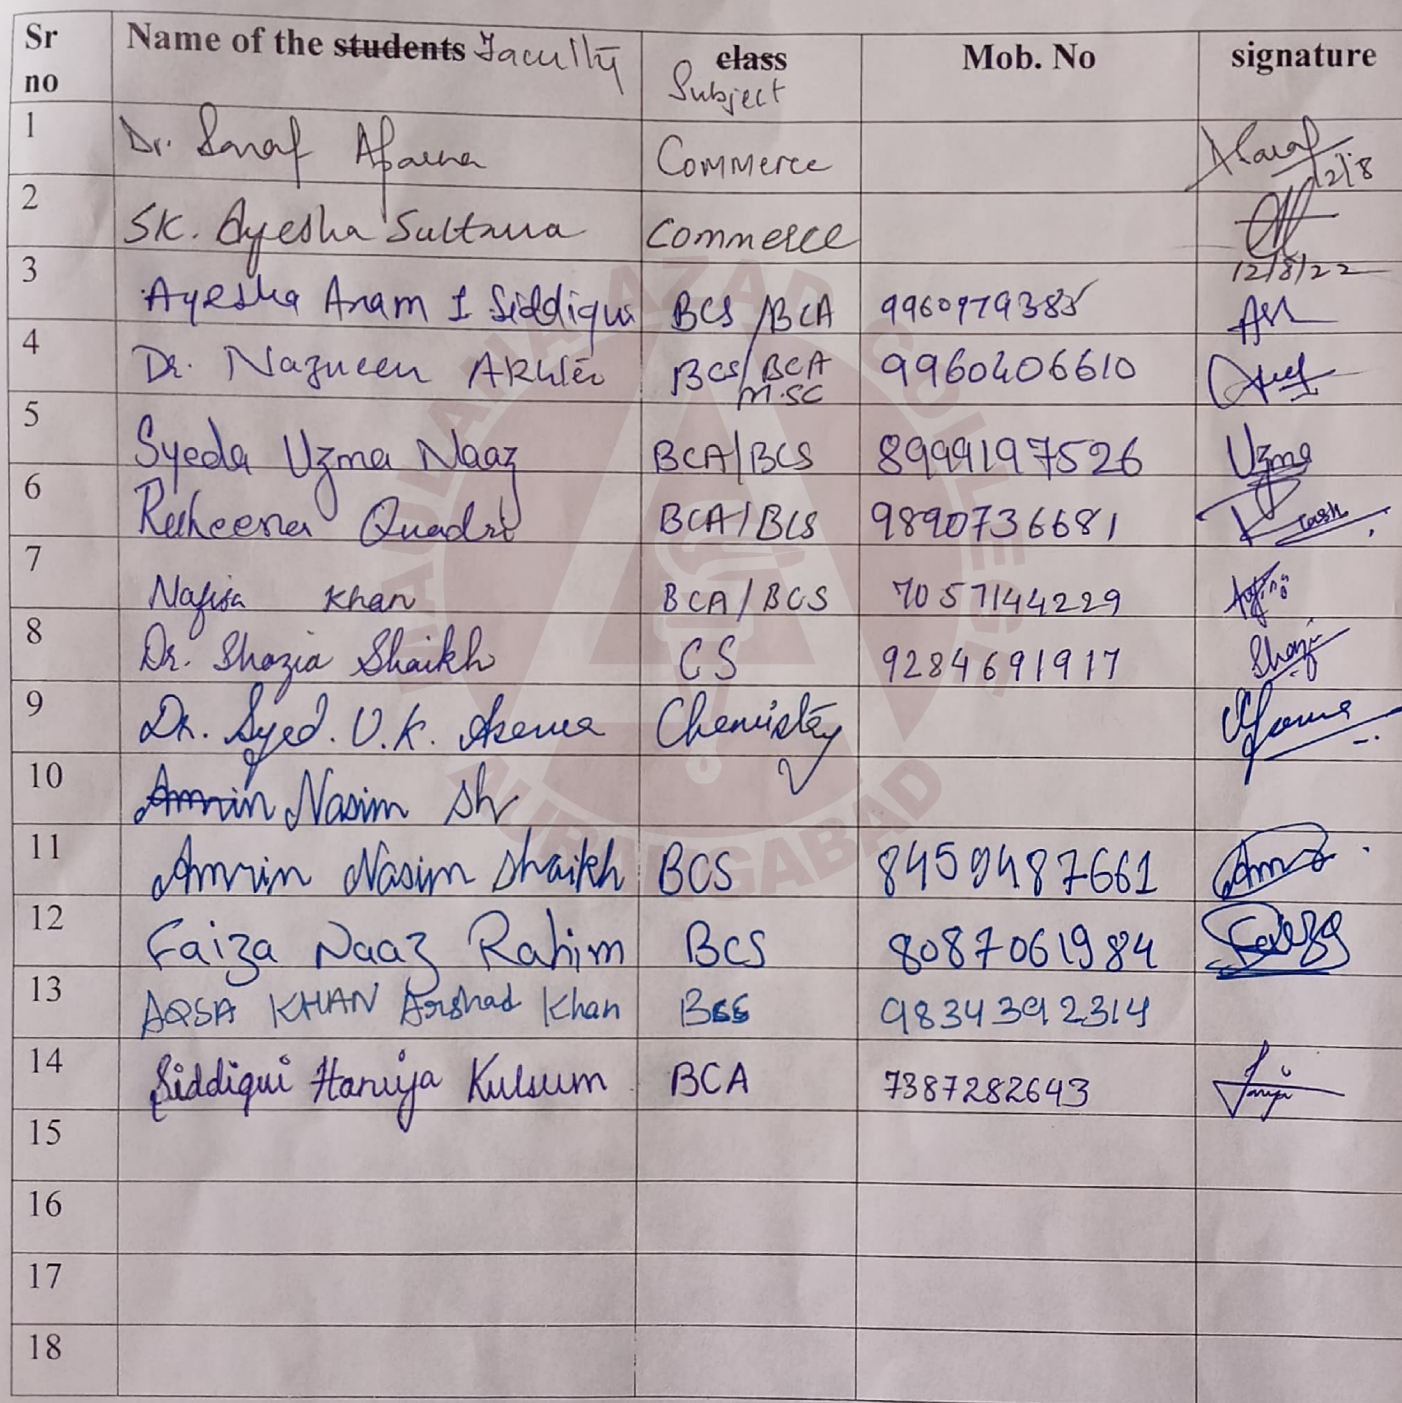 Sr no Name of the students Faculty class Subject Mob. No signature
1 Dr. Saraf Afsana Commerce 12/8
2 SK. Ayesha Sultana Commerce 12/8/22
3 Ayesha Anam I Siddiqui BCS/BCA 9960779385
4 Dr. Nazneen Akhter BCS/BCA M.SC 9960406610
5 Syeda Uzma Naaz BCA/BCS 8999197526 Uzma
6 Raheena Quadri BCA/BCS 9890736681
7 Nafisa Khan BCA/BCS 7057144229
8 Dr. Shazia Shaikh CS 9284691917
9 Dr. Syed. U.K. Chemistry
10 Amrin Nasim Sh
11 Amrin Nasim Shaikh BCS 8459487661
12 Faiza Naaz Rahim BCS 8087061984 Faiza
13 AQSA KHAN Arshad Khan 9834392314
14 Siddiqui Haniya Kulsum BCA 7387282643
15
16
17
18
MAULANA AZAD COLLEGE
AURANGABAD